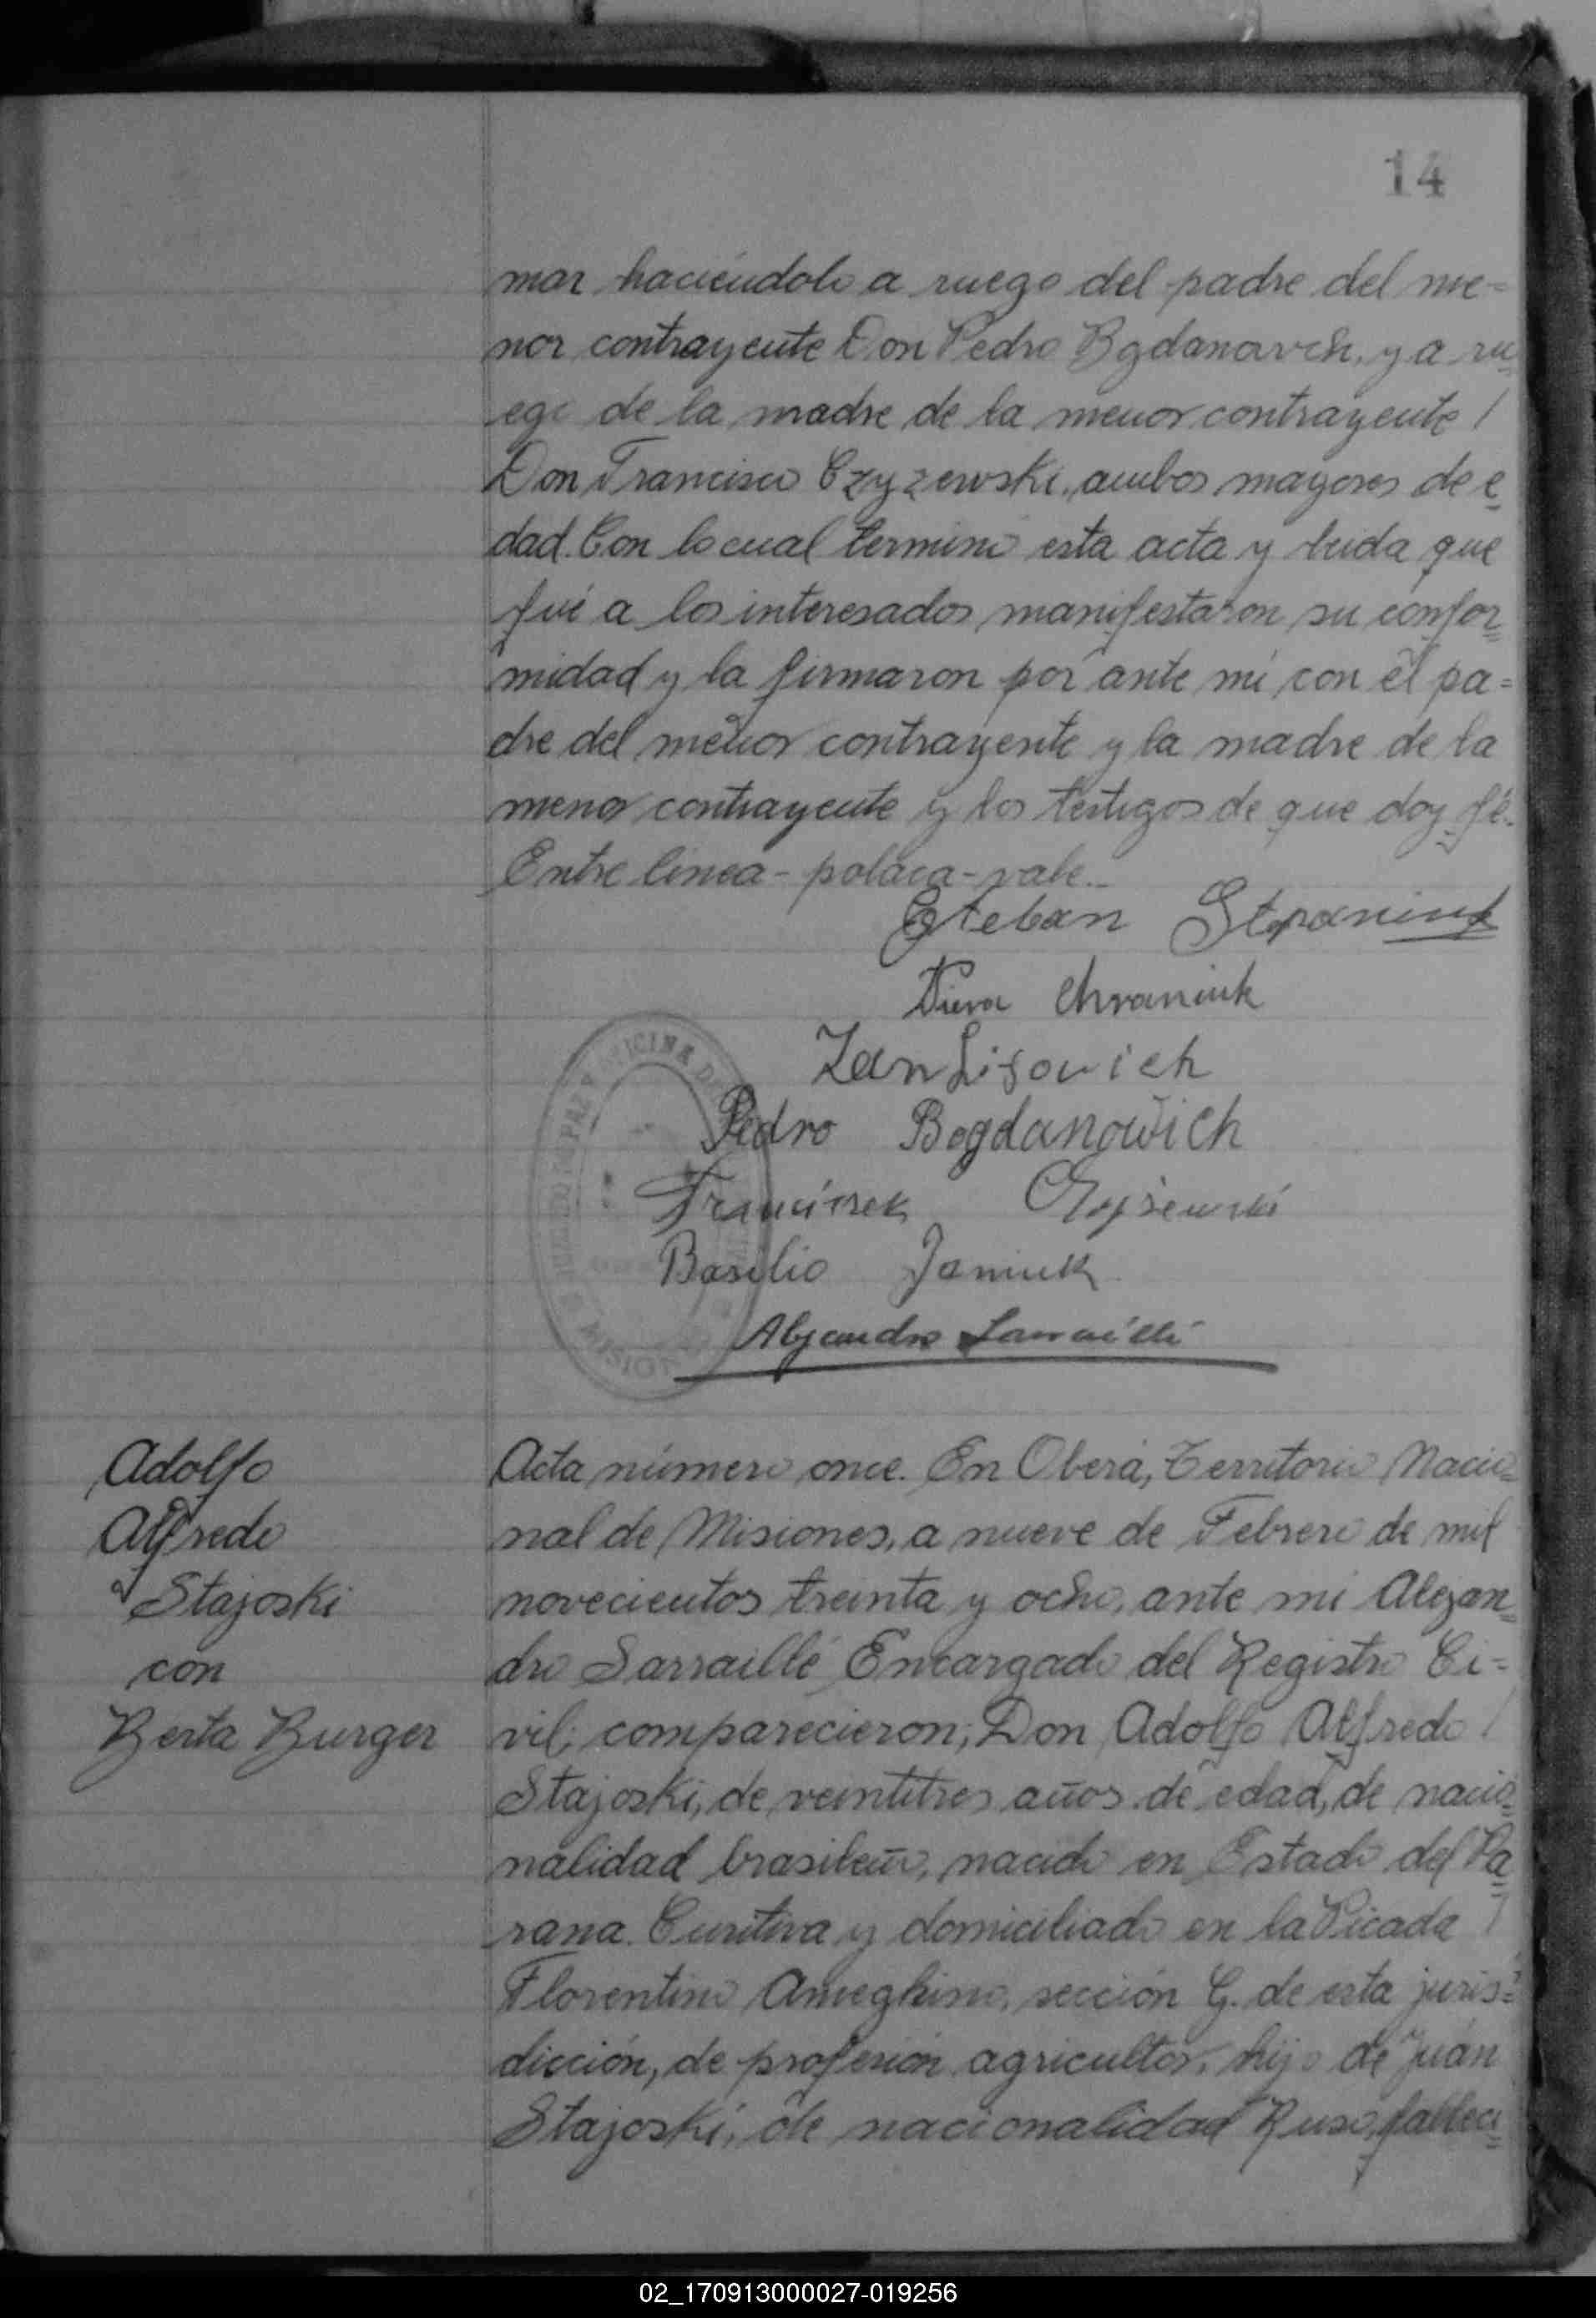 14
mar haciéndolo a ruego del padre del me=
nor contrayente Don Pedro Bgdanovich, y a ru
ego de la madre de la menor contrayente /
Don Francisco Czyzewski, ambos mayores de e
dad. Con lo cual termino esta acta y leida que
fué a los interesados manifestaron su confor
midad y la firmaron por ante mi con el pa=
dre del menor contrayente y la madre de la
menor contrayente y los testigos de que doy fé.
Entre linea - polaca - vale.-
Esteban Stepaniuk
Chraniuk
Jan Lisowich
Pedro Bogdanowich
Franciszek Czyżewski
Basilio Janiuk
Alejandro Sarraillé
OFICINA
MISIONES
Adolfo
Alfredo
Stajoski
con
Berta Burger
Acta número once. En Oberá, Territorio Nacio=
nal de Misiones, a nueve de Febrero de mil
novecientos treinta y ocho, ante mi Alejan=
dro Sarraillé Encargado del Registro Ci=
vil; comparecieron; Don Adolfo Alfredo /
Stajoski, de veintitres años de edad, de nacio=
nalidad brasileño, nacido en Estado del Pa
rana. Curitiva y domiciliado en la Picada /
Florentino Ameghino, sección G. de esta juris=
dicción, de profesión agricultor, hijo de Juan
Stajoski, de nacionalidad Ruso, falleci
02_170913000027-019256